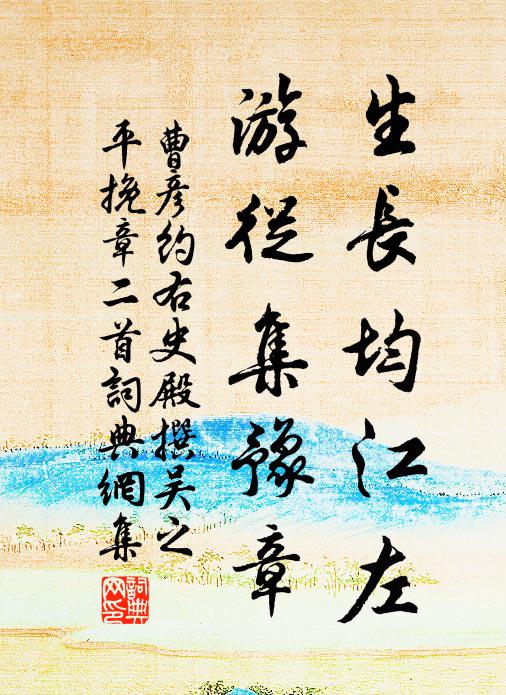 生長均江左
游從集豫章
曹彦約右史殿撰吴之
平挽章二首詞典網集